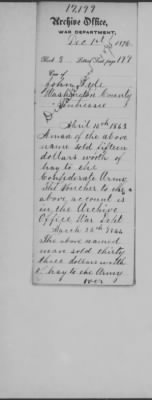 17,199
Archive Office,
WAR DEPARTMENT,
Dec 1st 1876.
Book 3 Letters Sent, page 199
Case of
John
Washington County
Tennessee
April 10th 1863
A man of the above
name sold fifteen
dollars worth of
hay to the
Confederate Army
The Voucher to the
above account is
in the Archive
Office War Dept
March 25th 1864
The above named
man sold thirty
three dollars worth
hay to the Army
over